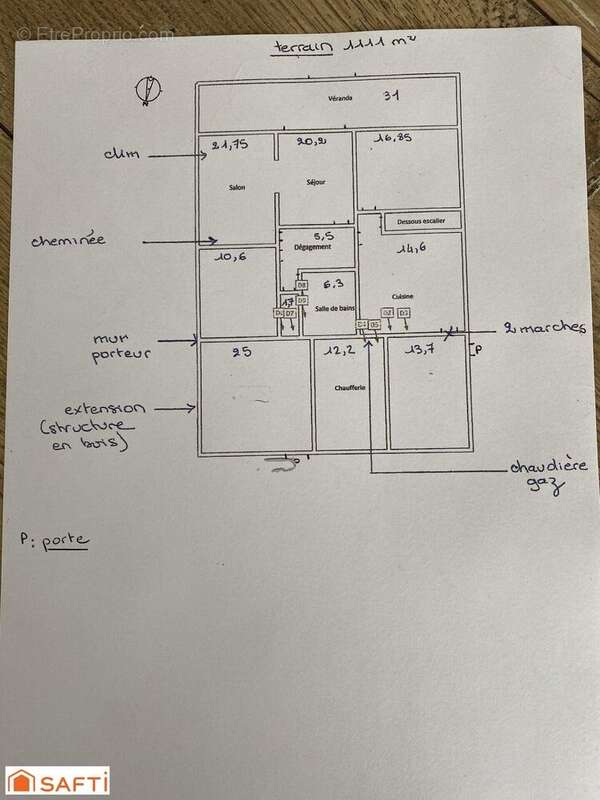 © EtreProprio.com
terrain 1111 m²
N
Véranda 31
21,75 20,2 16,85
clim
Salon Séjour
Dessous escalier
cheminée
5,5
Dégagement
14,6
10,6
D8
6,3
1,7 D9
Cuisine
Salle de bains
D7 D2 D3
D5
2 marches
mur
porteur
25 12,2 13,7
P
Chaufferie
extension
(structure
en bois)
P
chaudière
gaz
P : porte
SAFTI